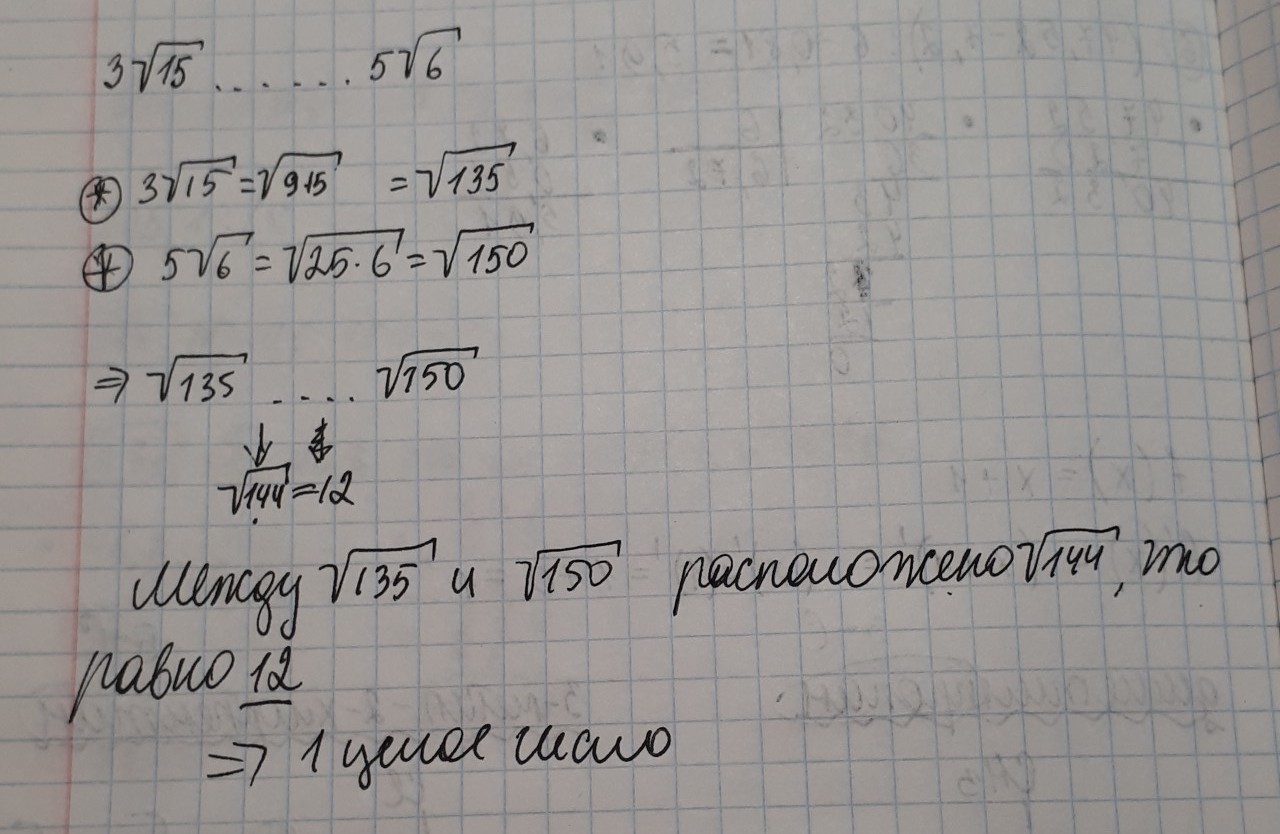 3√15 ....... 5√6
⊛ 3√15 = √9·15 = √135
⊛ 5√6 = √25·6 = √150
⇒ √135 ..... √150
↓ ↓
√144 = 12
Между √135 и √150 расположено √144, что
равно 12
⇒ 1 целое число